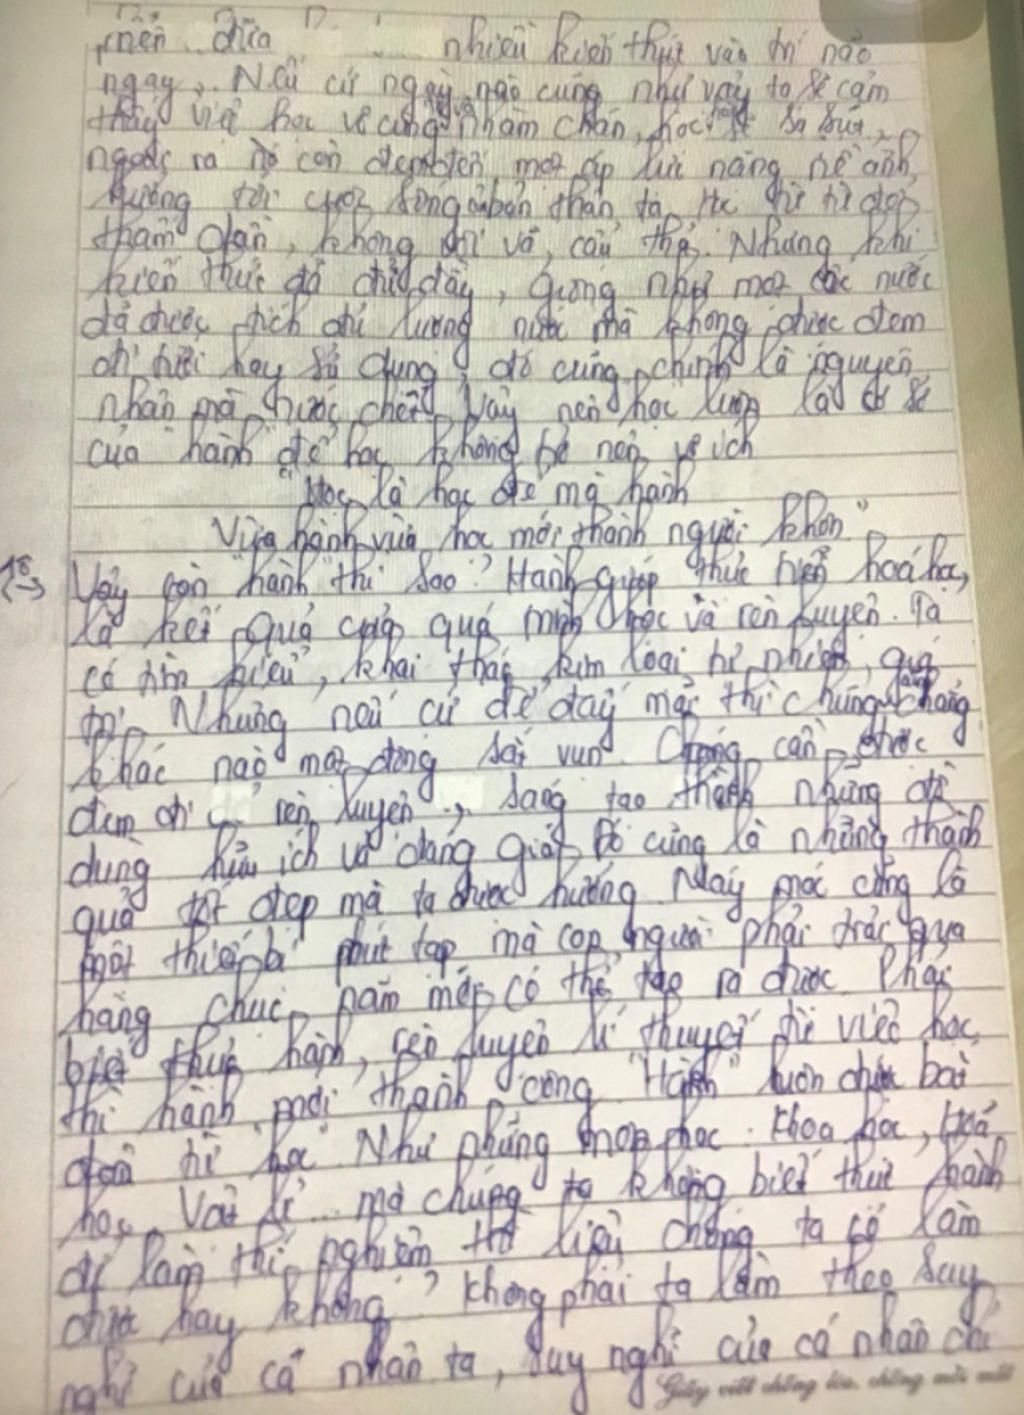 nên đưa nhiều kiến thức vào trí não
ngay. Nếu cứ ngày nào cũng như vậy ta sẽ cảm
thấy việc học vô cùng nhàm chán, học sa sút,
ngoài ra nó còn đem đến một áp lực nặng nề ảnh
hưởng tới cuộc sống của bản thân ta. Học từ từ
không cẩu thả. Nhưng khi
kiến thức đã đủ đầy, giống như một cốc nước
đã được tích đủ lượng nước mà không được đem
đi tưới hay sử dụng, đó cũng chính là nguyên
nhân mà nước Vậy nên học luôn là cơ sở
của "hành" để học không trở nên vô ích
"Học là học để mà hành
Vừa hành vừa học mới thành người khôn"
Vậy còn "hành" thì sao? Hành giúp thực hiện hoá học,
là kết quả của quá trình học và rèn luyện. Ta
có tìm kiếm, khai thác kim loại tự nhiên, quý
Nhưng nếu cứ để đấy mãi thì chúng cũng chẳng
khác nào một đống sắt vụn. Chúng cần được
đem đi rèn luyện, sáng tạo thành những đồ
dùng hữu ích và đáng giá. Đó cũng là những thành
quả tốt đẹp mà ta được hưởng. Máy móc cũng là
một thiết bị phức tạp mà con người phải trải qua
hàng chục năm mới có thể tạo ra được. Phải
biết thực hành, rèn luyện lí thuyết từ việc học
thì hành mới thành công. "Hành" luôn
từ "học". Như những môn học: Khoa học, Hoá
học, Vật lí... mà chúng ta không biết thực hành
để làm thí nghiệm thì liệu chúng ta có làm
được hay không? Không phải ta làm theo suy
nghĩ của cá nhân ta, suy nghĩ của cá nhân chỉ
Giấy viết chống lóa, chống mỏi mắt